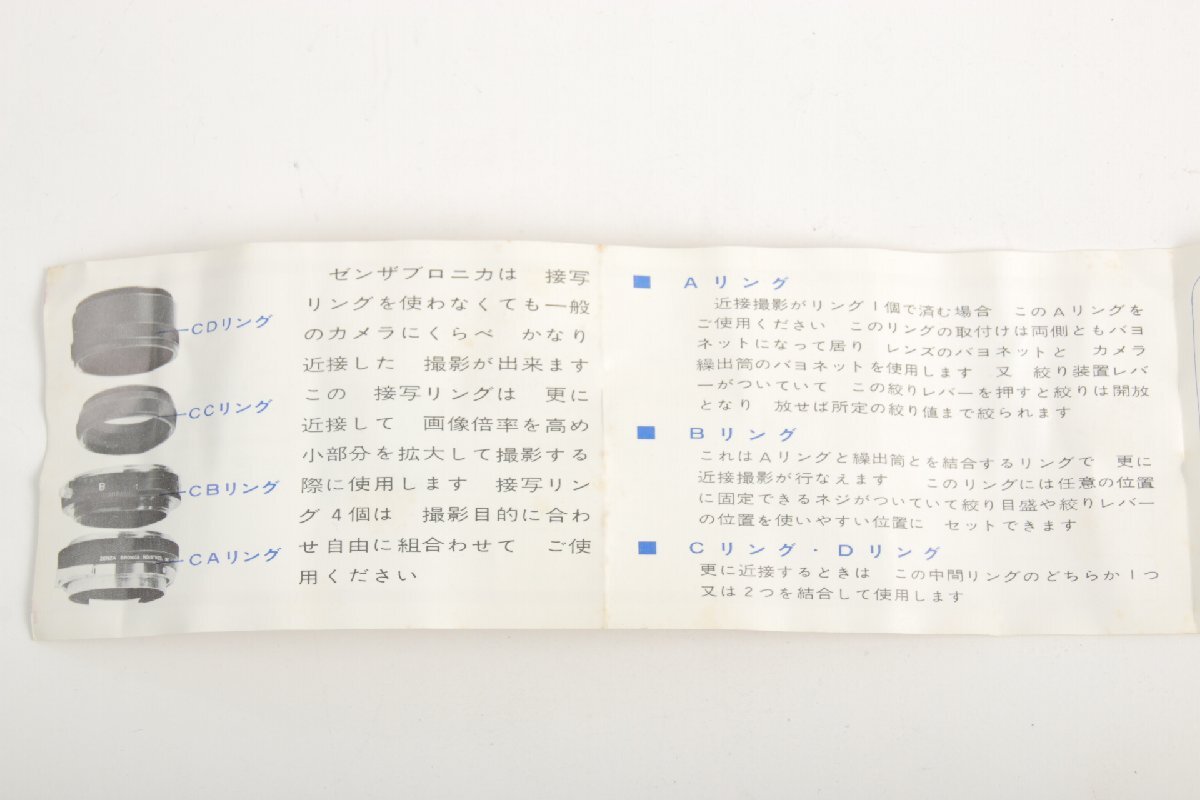 CDリング
CCリング
CBリング
CAリング
ゼンザブロニカは　接写
リングを使わなくても一般
のカメラにくらべ　かなり
近接した　撮影が出来ます
この　接写リングは　更に
近接して　画像倍率を高め
小部分を拡大して撮影する
際に使用します　接写リン
グ4個は　撮影目的に合わ
せ自由に組合わせて　ご使
用ください
■ Aリング
近接撮影がリング1個で済む場合　このAリングを
ご使用ください　このリングの取付けは両側ともバヨ
ネットになって居り　レンズのバヨネットと　カメラ
繰出筒のバヨネットを使用します　又　絞り装置レバ
ーがついていて　この絞りレバーを押すと絞りは開放
となり　放せば所定の絞り値まで絞られます
■ Bリング
これはAリングと繰出筒とを結合するリングで　更に
近接撮影が行なえます　このリングには任意の位置
に固定できるネジがついていて絞り目盛や絞りレバー
の位置を使いやすい位置に　セットできます
■ Cリング・Dリング
更に近接するときは　この中間リングのどちらか1つ
又は2つを結合して使用します
B
ZENZA BRONICA